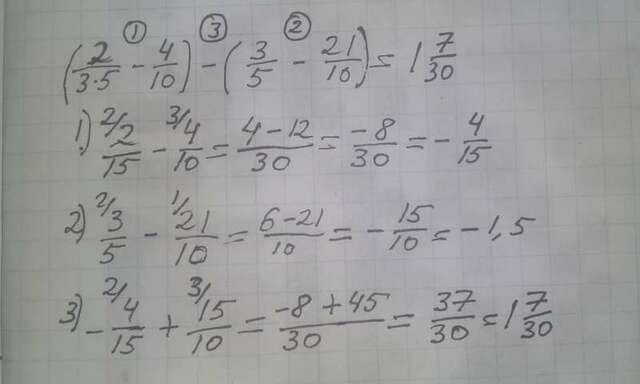 ① ③ ②
(2/3·5 - 4/10) - (3/5 - 21/10) = 1 7/30
1) 2/ 2/15 - 3/ 4/10 = 4-12/30 = -8/30 = - 4/15
2) 2/ 3/5 - 1/ 21/10 = 6-21/10 = - 15/10 = -1,5
3) - 2/ 4/15 + 3/ 15/10 = -8+45/30 = 37/30 = 1 7/30